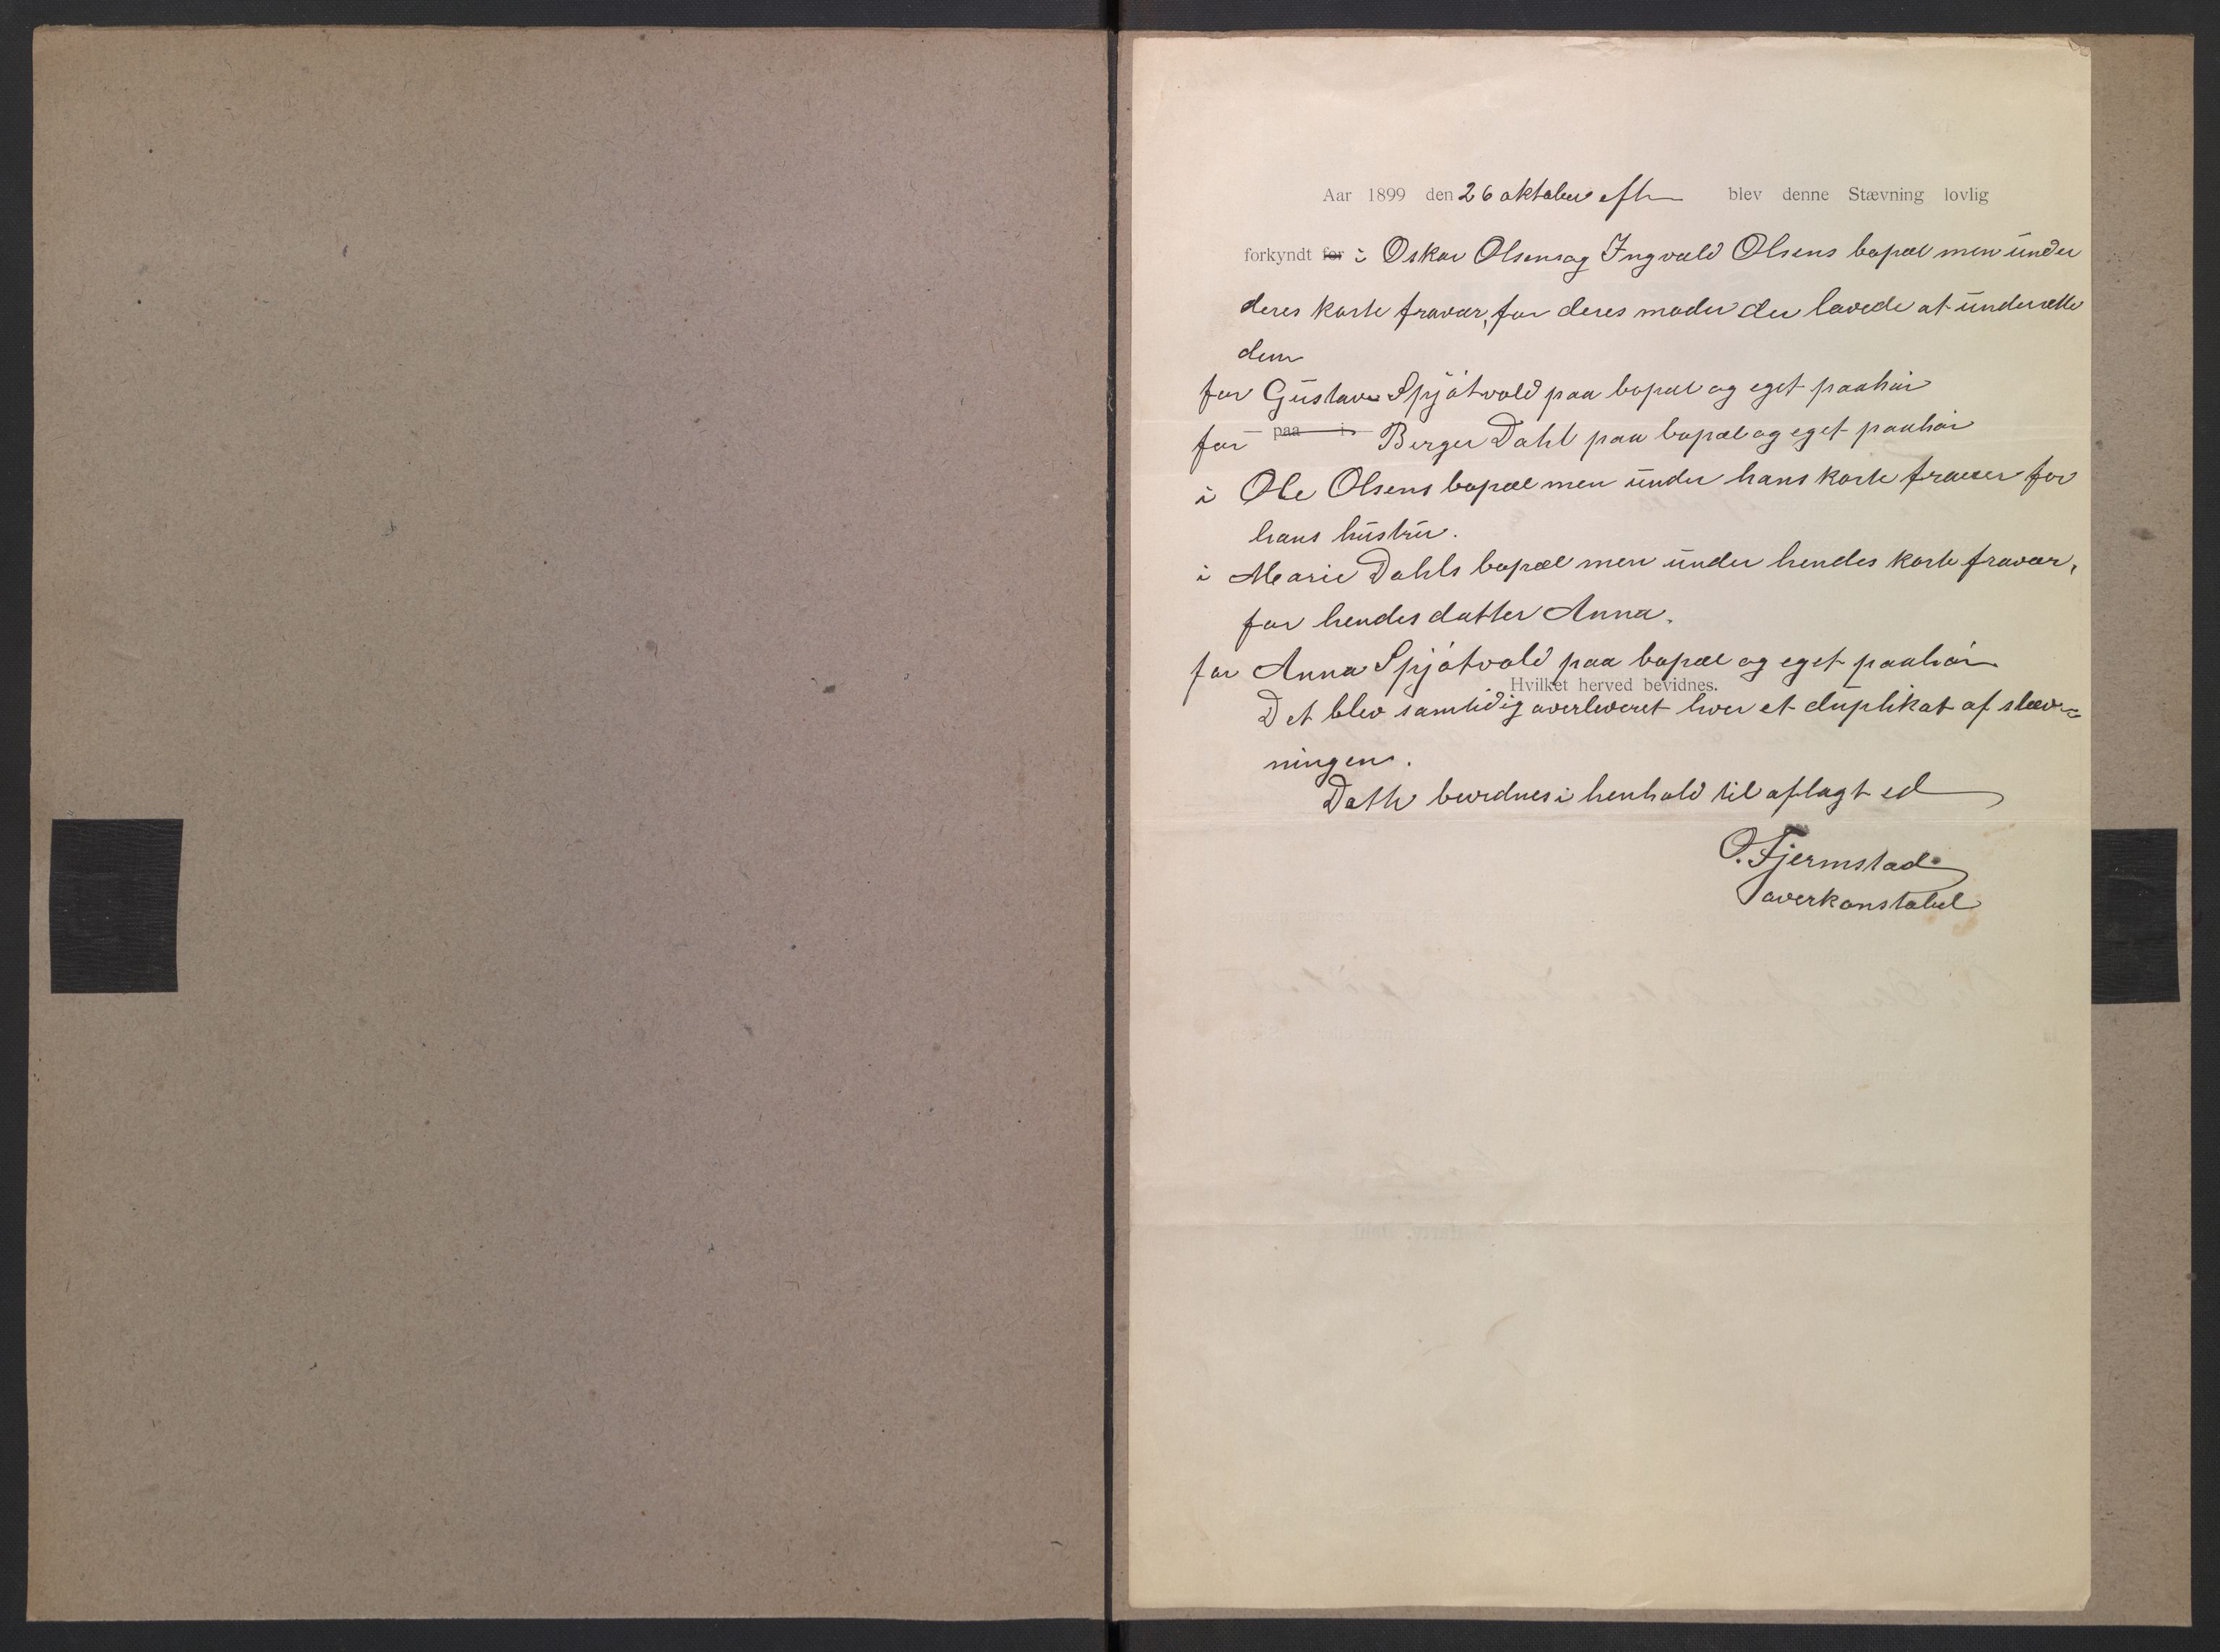 Aar 1899 den 26 oktober efth blev denne Stævning lovlig
forkyndt for i Oskar Olsens og Ingvald Olsens bopæl men under
deres korte fravær, for deres moder der lovede at underrette
dem
for Gustav Spjøtvold paa bopæl og eget paahør
for paa i Berger Dahl paa bopæl og eget paahør
i Ole Olsens bopæl men under hans korte fravær for
hans hustru.
i Marie Dahls bopæl men under hendes korte fravær,
for hendes datter Anna.
for Anna Spjøtvold paa bopæl og eget paahør
Hvilket herved bevidnes.
Det blev samtidig overleveret hver et duplikat af stævn=
ningen.
Dette bevidnes i henhold til aflagt ed
O. Fjermstad
overkonstabel